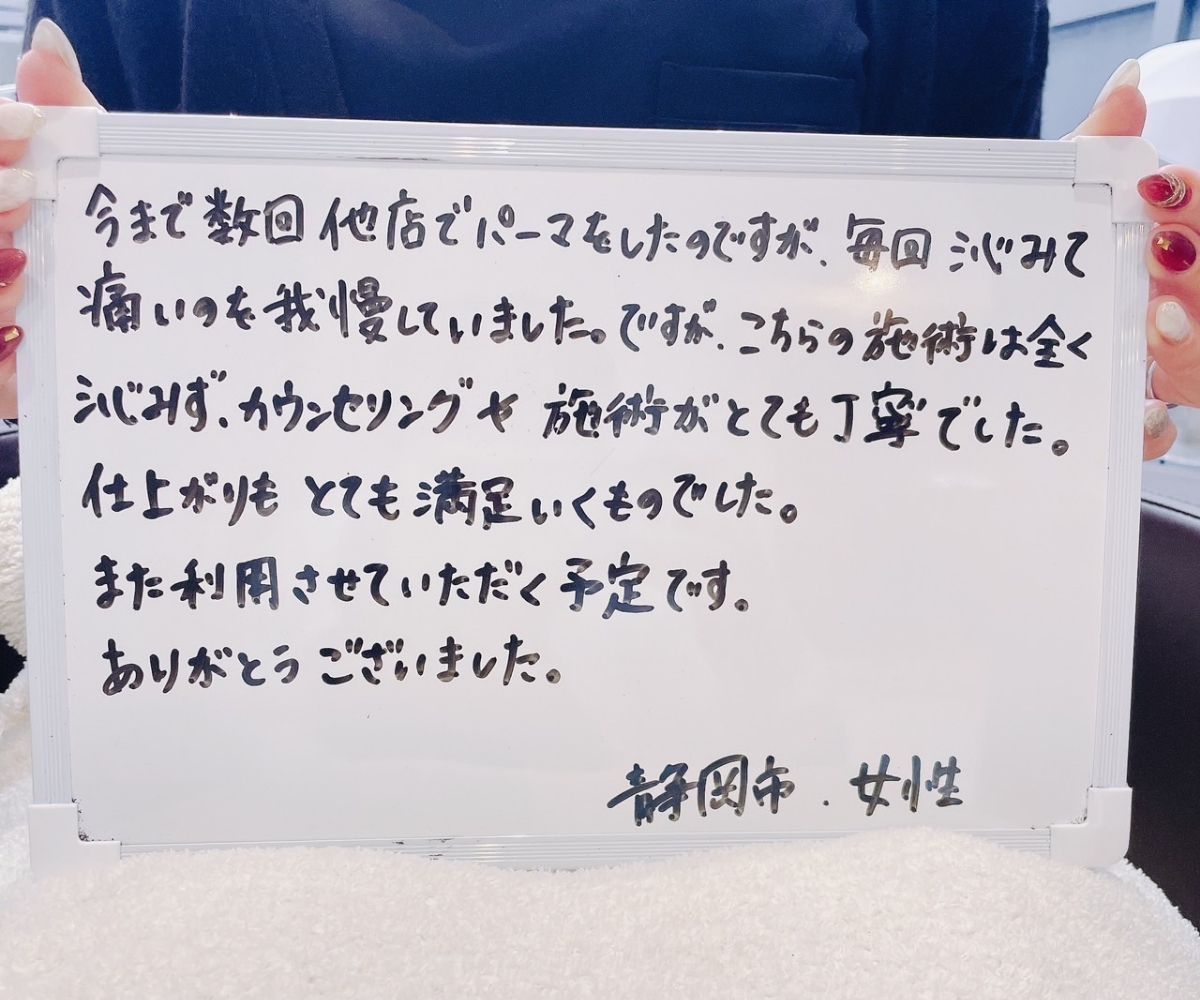 今まで数回他店でパーマをしたのですが、毎回沁みて
痛いのを我慢していました。ですが、こちらの施術は全く
沁じみず、カウンセリングや施術がとても丁寧でした。
仕上がりもとても満足いくものでした。
また利用させていただく予定です。
ありがとうございました。
静岡市.女性